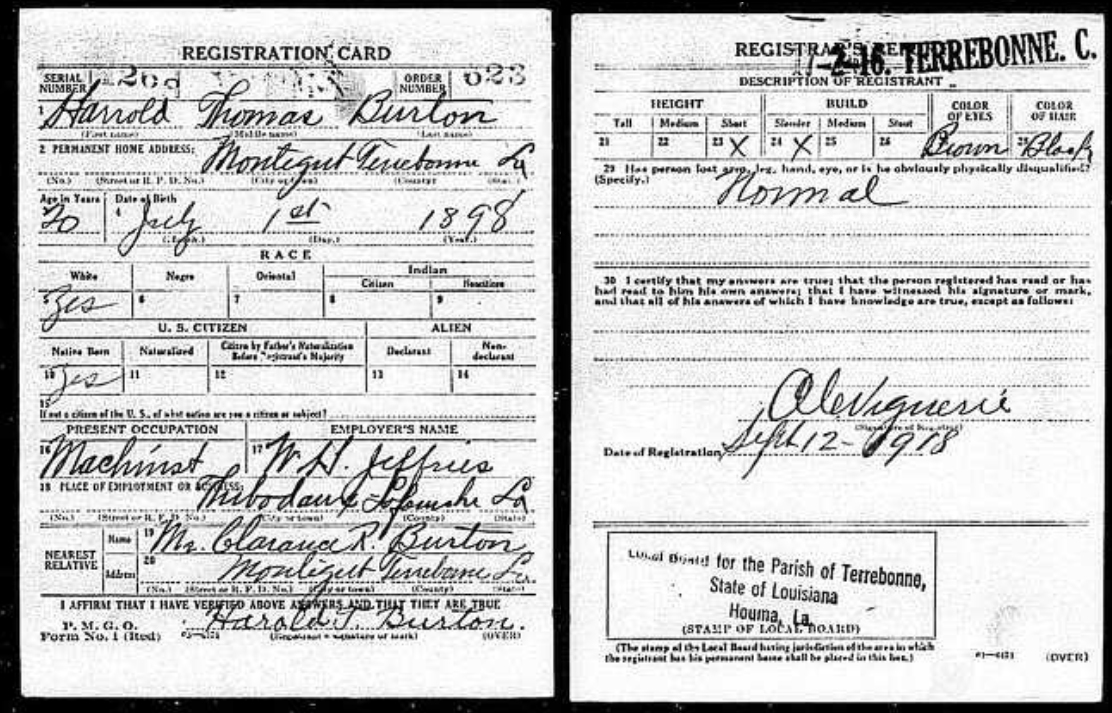 REGISTRATION CARD
SERIAL NUMBER ORDER NUMBER 623
1 Harrold Thomas Burton
(First name) (Middle name) (Last name)
2 PERMANENT HOME ADDRESS: Montegut Terrebonne La
(No.) (Street or R. F. D. No.) (City or town) (County) (State)
Age in Years Date of Birth
20 4 July 1st 1898
(Month.) (Day.) (Year.)
RACE
White Negro Oriental Indian
Citizen Noncitizen
Yes 6 7 8 9
U. S. CITIZEN ALIEN
Native Born Naturalized Citizen by Father's Naturalization Before Registrant's Majority Declarant Non-declarant
10 Yes 11 12 13 14
15
If not a citizen of the U. S., of what nation are you a citizen or subject?
PRESENT OCCUPATION EMPLOYER'S NAME
16 Machinst 17 W. H. Jeffries
18 PLACE OF EMPLOYMENT OR BUSINESS: Thibodaux Lafourche La
(No.) (Street or R. F. D. No.) (City or town) (County) (State)
NEAREST RELATIVE Name 19 Mr. Clarance R. Burton
Address 20 Montegut Terrebonne La
(No.) (Street or R. F. D. No.) (City or town) (County) (State)
I AFFIRM THAT I HAVE VERIFIED ABOVE ANSWERS AND THAT THEY ARE TRUE
P. M. G. O.
Form No. 1 (Red) 03-6171 Harold T. Burton.
(Registrant's signature or mark) (OVER)
REGISTRAR'S REPORT
17-2-16. TERREBONNE. C.
DESCRIPTION OF REGISTRANT
HEIGHT BUILD COLOR OF EYES COLOR OF HAIR
Tall Medium Short Slender Medium Stout
21 22 23 X 24 X 25 26 Brown 28 Black
29 Has person lost arm, leg, hand, eye, or is he obviously physically disqualified?
(Specify.) Normal
30 I certify that my answers are true; that the person registered has read or has
had read to him his own answers; that I have witnessed his signature or mark,
and that all of his answers of which I have knowledge are true, except as follows:
(Signature of Registrar)
Date of Registration Sept 12 - 1918
Local Board for the Parish of Terrebonne,
State of Louisiana
Houma, La.
(STAMP OF LOCAL BOARD)
(The stamp of the Local Board having jurisdiction of the area in which
the registrant has his permanent home shall be placed in this box.)
03-6171 (OVER)